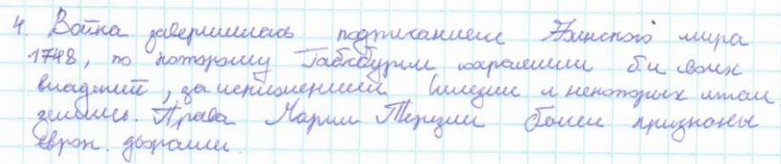 4. Война завершилась подписанием Ахенского мира
1748, по которому Габсбурги сохранили б. ч. своих
владений, за исключением Силезии и некоторых итал.
земель. Права Марии Терезии были признаны
европ. дворами.